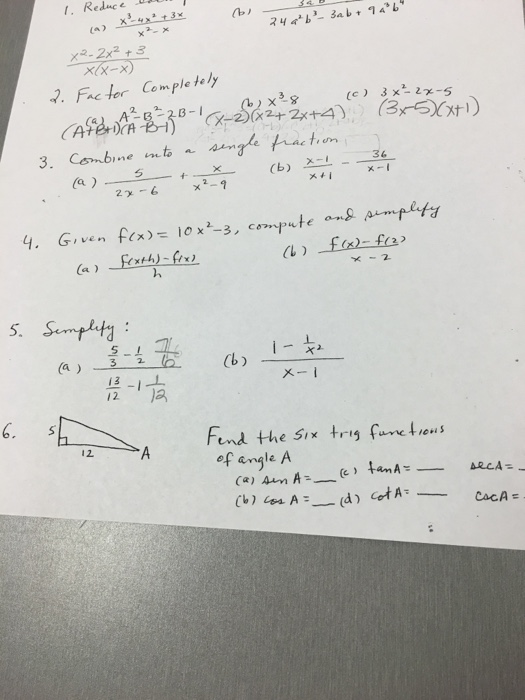 1. Reduce
(a) x³-4x²+3x / x²-x (b) / 24a²b³-3ab+9a³b⁴
x²-2x²+3 / x(x-x)
2. Factor Completely
(a) A²-B²-2B-1 (b) x³-8 (c) 3x²-2x-5
(A+B+1)(A-B-1) (x-2)(x²+2x+4) (3x-5)(x+1)
3. Combine into a single fraction
(a) 5/(2x-6) + x/(x²-9) (b) (x-1)/(x+1) - 36/(x-1)
4. Given f(x)= 10x²-3, compute and simplify
(a) (f(x+h)-f(x))/h (b) (f(x)-f(2))/(x-2)
5. Simplify:
(a) (5/3 - 1/2 7/6)/(13/12 - 1 1/12) (b) (1 - 1/x²)/(x-1)
6. 5 12 A
Find the six trig functions
of angle A
(a) sin A=__ (c) tan A=__ sec A=_
(b) cos A=__ (d) cot A=__ csc A=